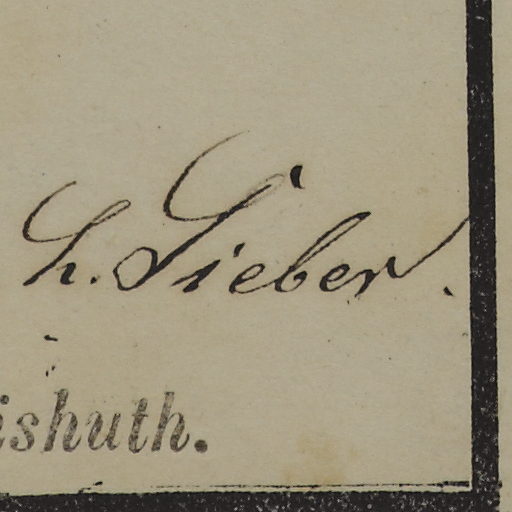 h. Sieber.
ishuth.